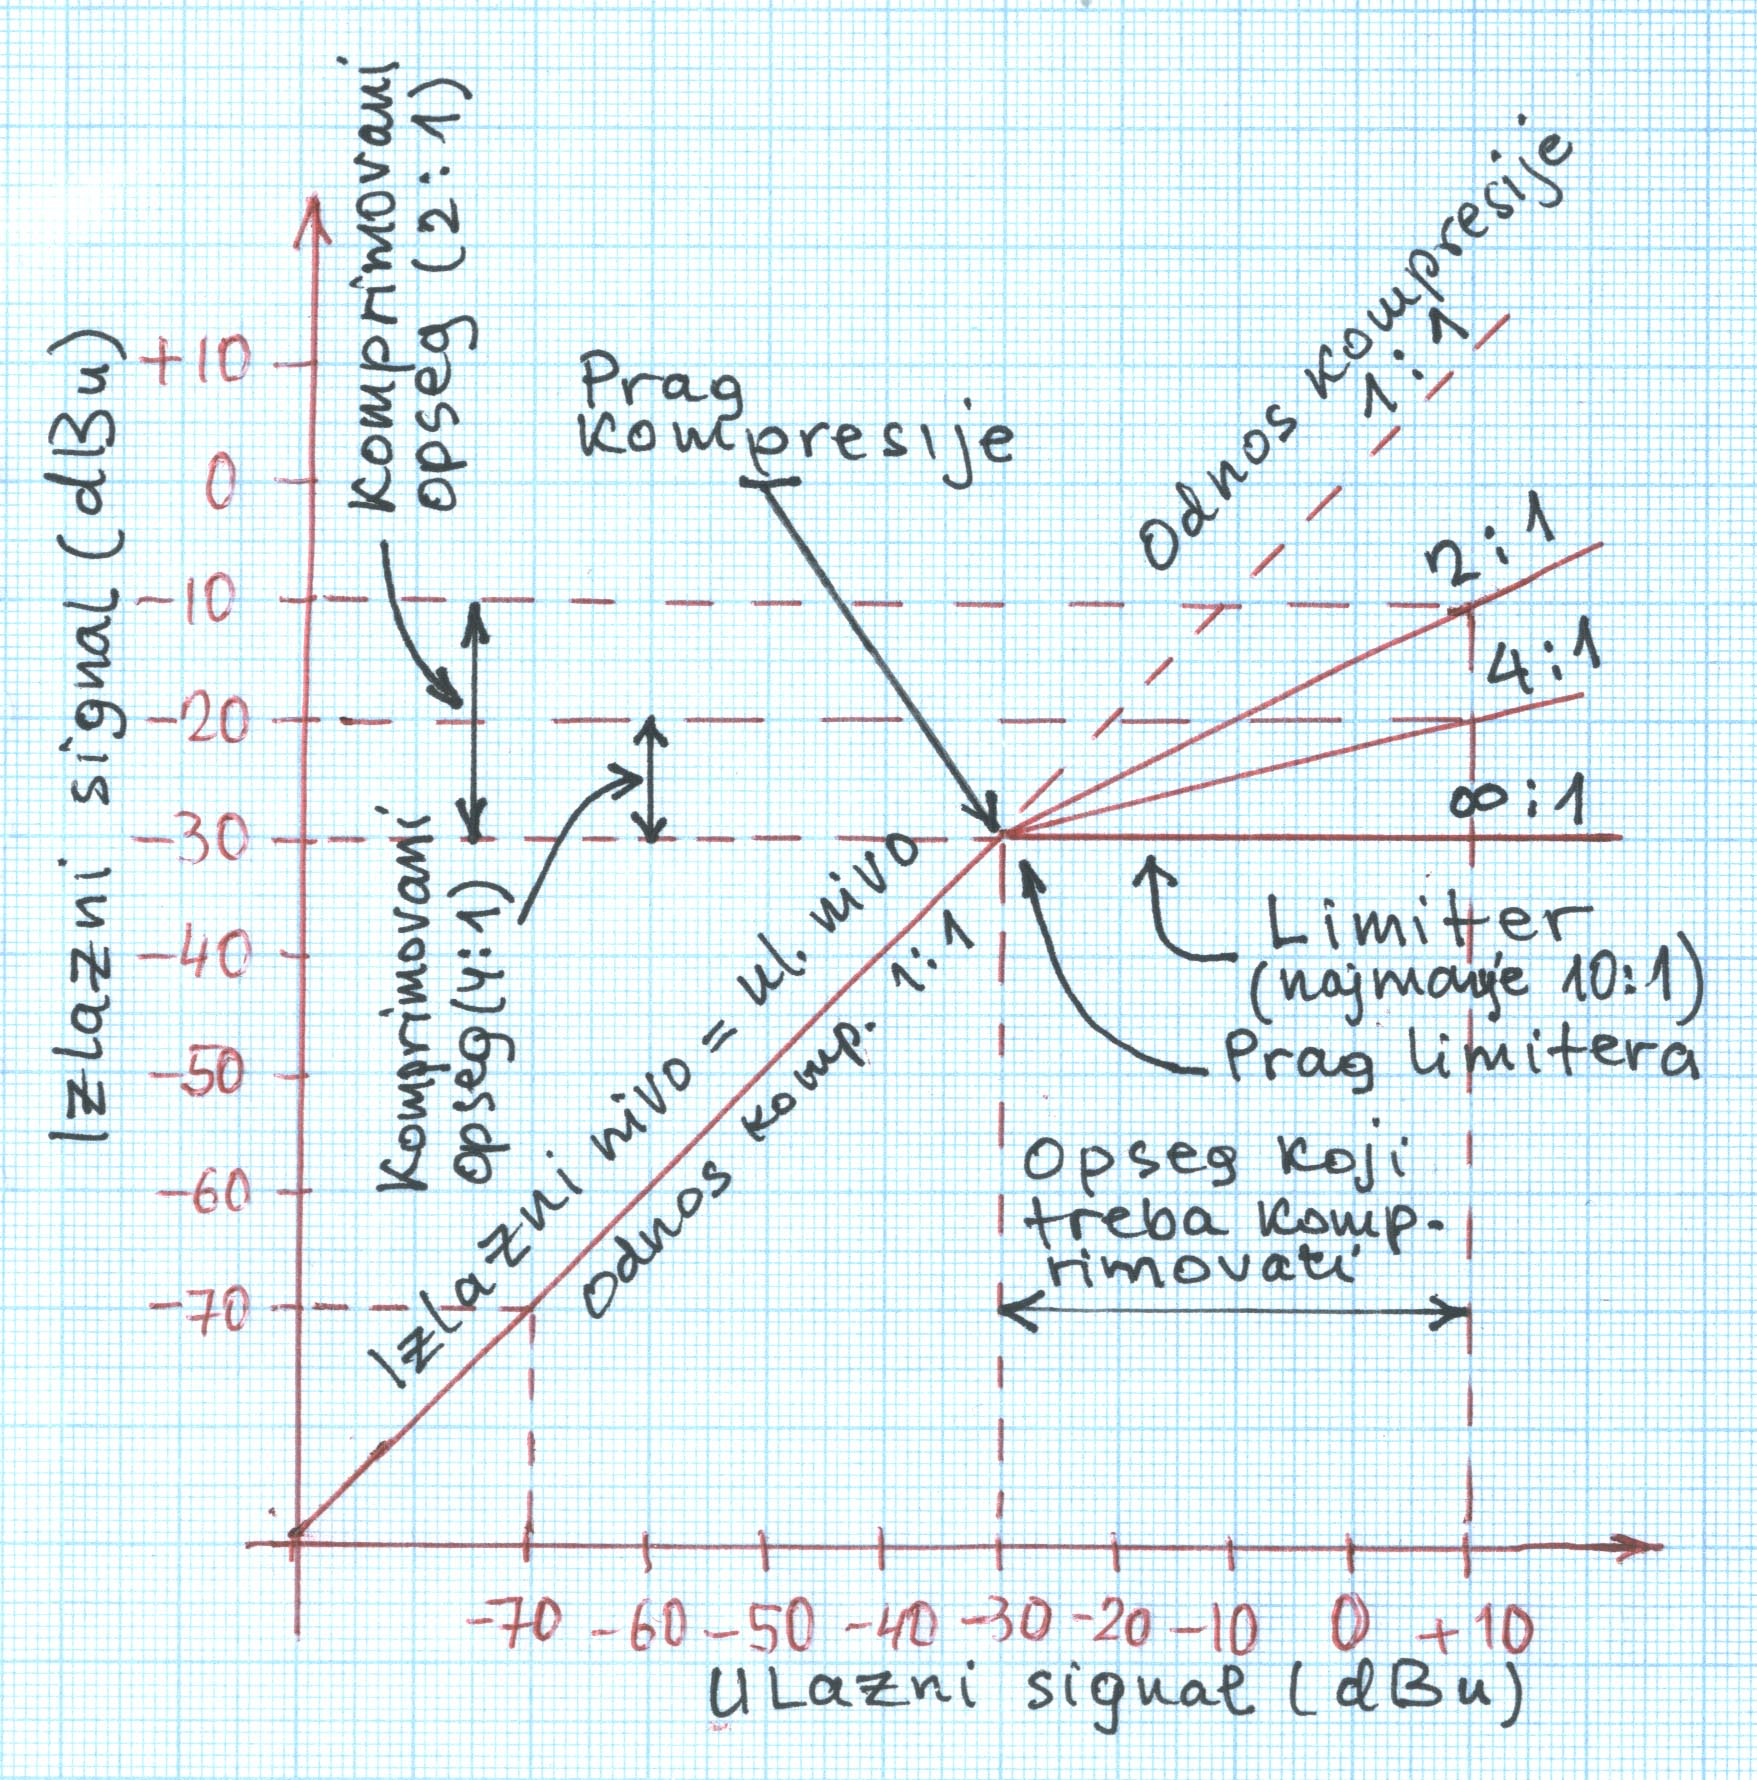 Komprimovani
opseg (2:1)
Izlazni signal (dBu)
+10
0
-10
-20
-30
-40
-50
-60
-70
Prag
kompresije
Odnos kompresije
1:1
2:1
4:1
∞:1
Komprimovani
opseg (4:1)
Izlazni nivo = ul. nivo
Odnos komp. 1:1
Limiter
(najmanje 10:1)
Prag limitera
Opseg koji
treba komp-
rimovati
-70 -60 -50 -40 -30 -20 -10 0 +10
Ulazni signal (dBu)